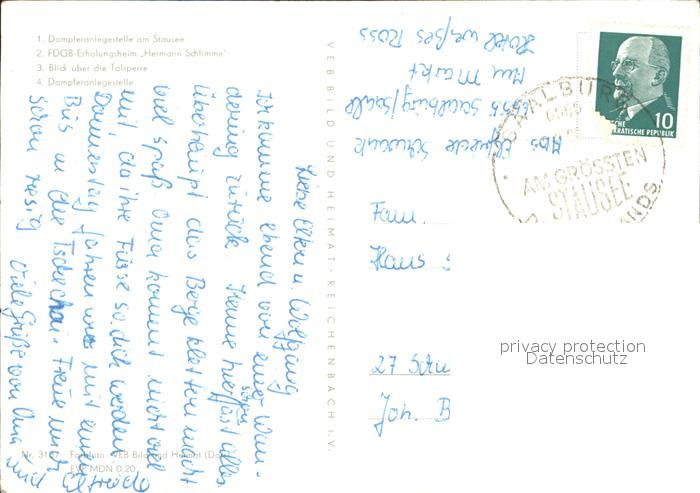 1. Dampferanlegestelle am Stausee
2. FDGB-Erholungsheim „Hermann Schlimme"
3. Blick über die Talsperre
4. Dampferanlegestelle
Liebe Eltern u. Wolfgang
Ich komme eben von einer Wan-
derung zurück. Keine hier schon fast alles
überhaupt das Berge klettern macht
viel spaß Oma kommt nicht viel
mit, da ihre Füsse so dick werden
Donnerstag fahren wir mit einem
Bus in die Tschechei. Freue mich
schon riesig
Viele Grüße von Oma und
Elfriede
VEB BILD UND HEIMAT · REICHENBACH I.V.
Abs Elfriede
6555 Saalburg/Saale
Am Markt
Hotel weißes Ross
SAALBURG
6555
AM GRÖSSTEN
STAUSEE
ANDS
10
DEUTSCHE DEMOKRATISCHE REPUBLIK
Fam.
Hans
27
Joh. B
privacy protection
Datenschutz
Nr. Farbfoto VEB Bild und Heimat
EVP MDN 0,20